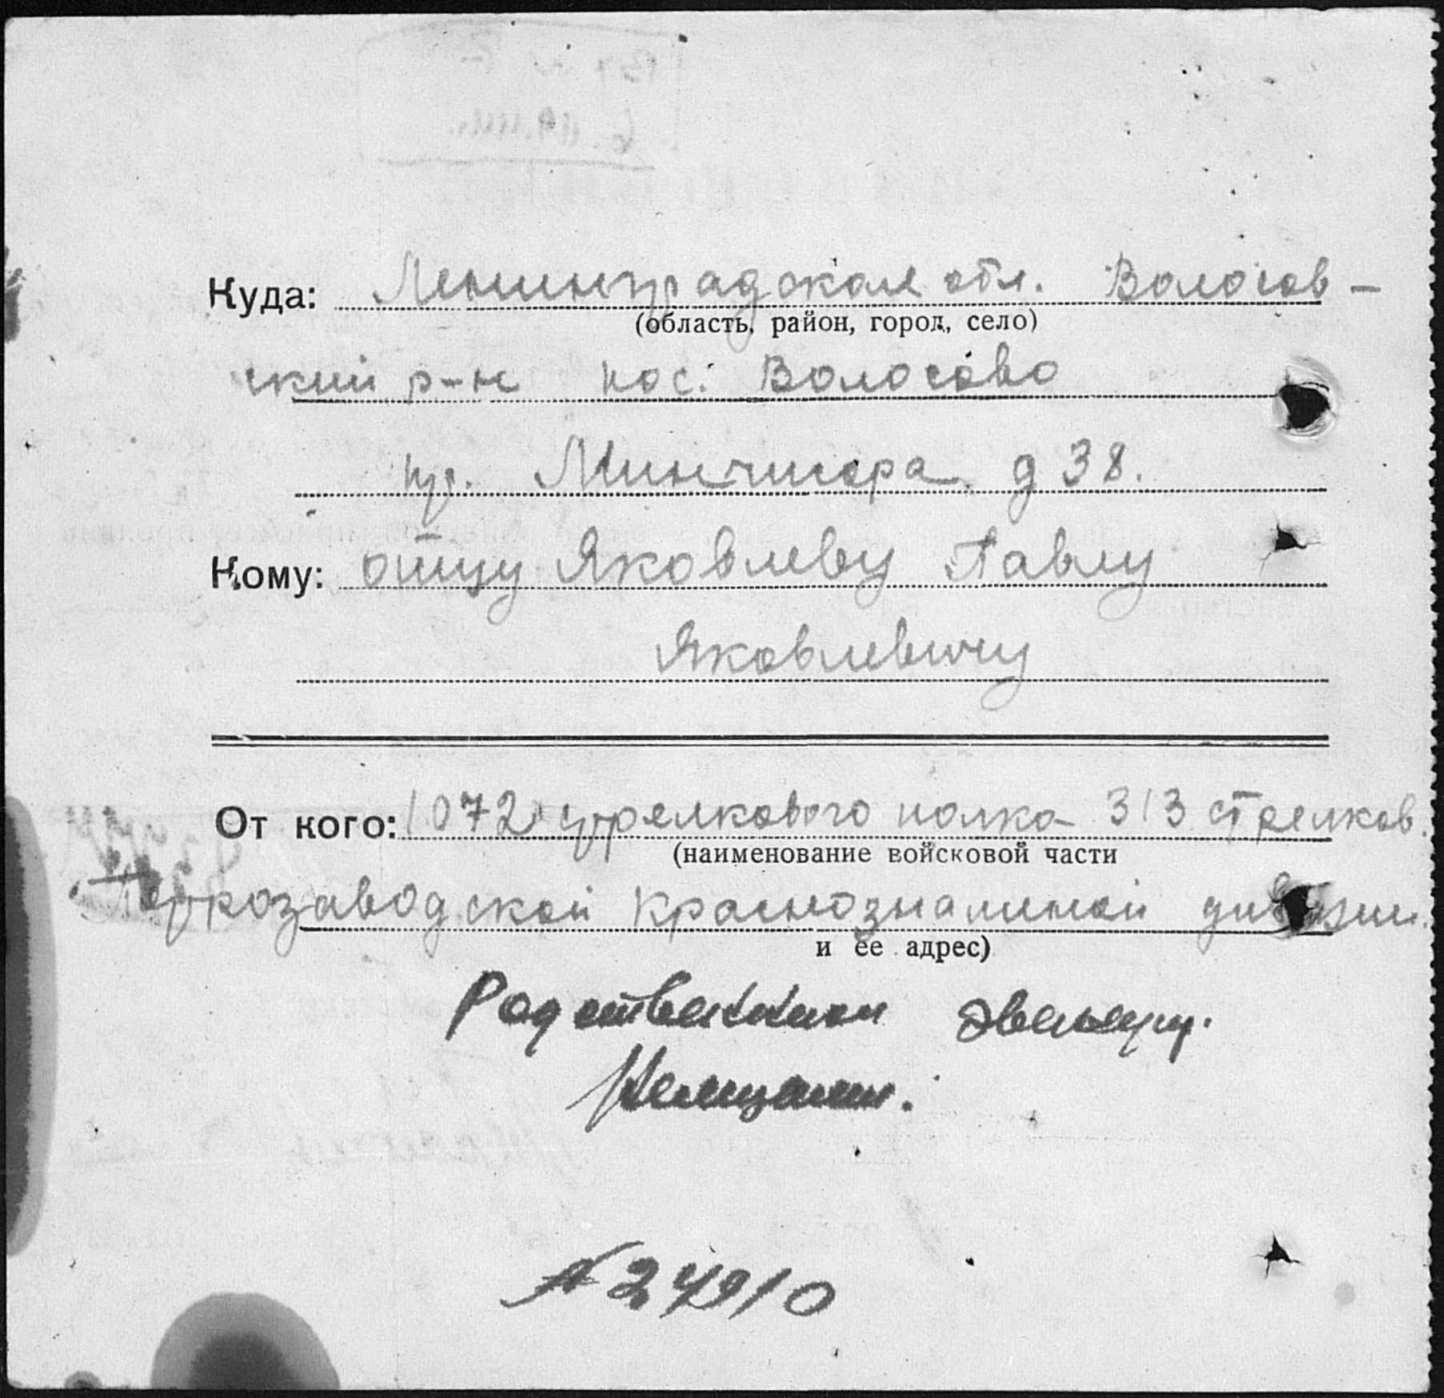 Куда: Ленинградская обл. Волосов-
(область, район, город, село)
ский р-н пос. Волосово
пр. д 38.
Кому: отцу Яковлеву Павлу
Яковлевичу
От кого: 1072 стрелкового полка 313 стрелков.
(наименование войсковой части
Петрозаводской Краснознаменной дивизии.
и ее адрес)
Родственники эвакуир.
Немцами.
№ 24910